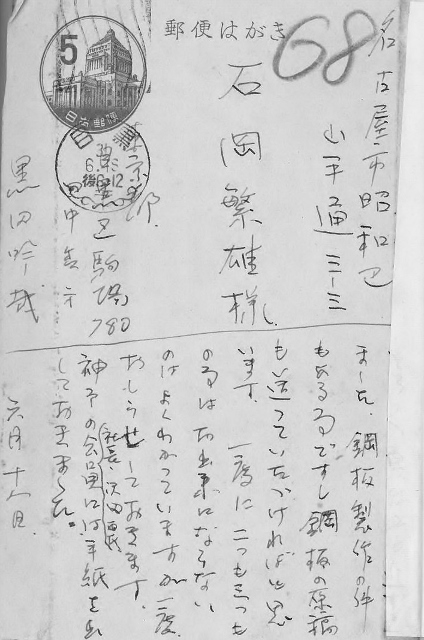 郵便はがき
68
5
日本郵便
名古屋市昭和区
山手通三ー三
石岡繁雄様
目黒
6.
後6-12
京都
目黒区駒場
780
黒田吟哉
ました。鋼板製作の件
もあるので すし 鋼板の原稿
も送っていただければと思
います。一度に二つも三つも
のはよくわかっていますが一度
おしらせしておきます。
社長
神予の会
には手紙を出
しておきました。
六月十八日